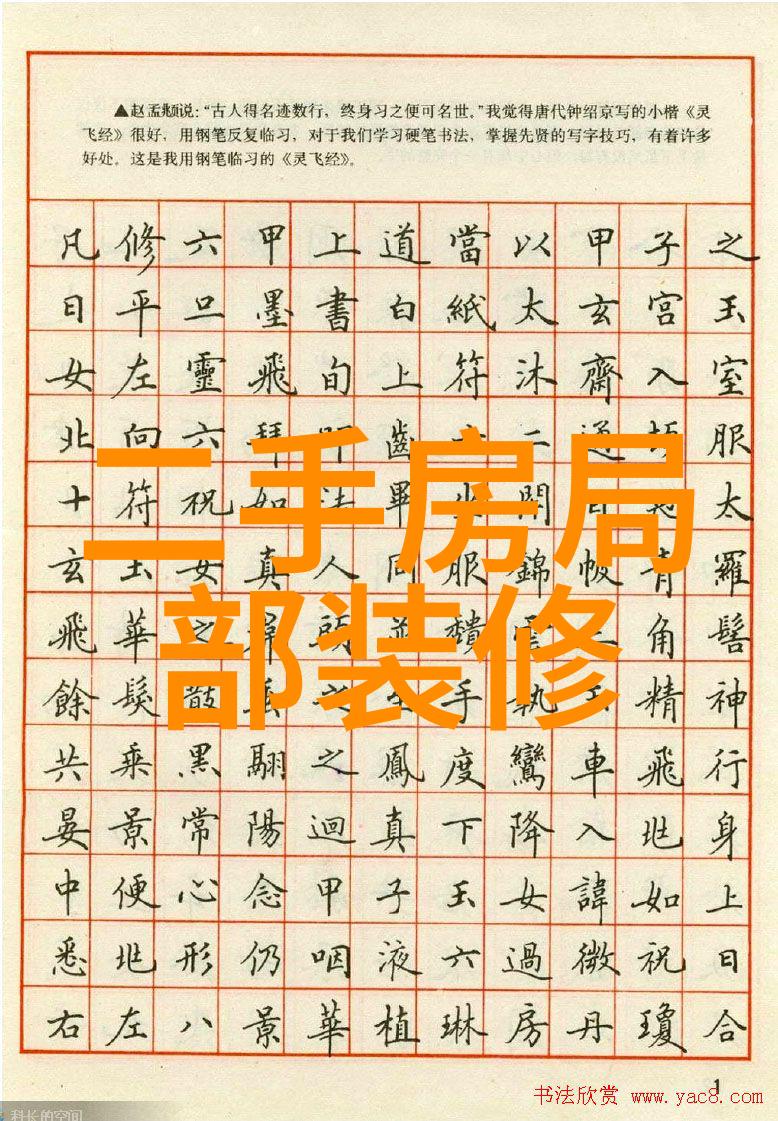 ▲赵孟頫说：“古人得名迹数行，终身习之便可名世。”我觉得唐代钟绍京写的小楷《灵
飞经》很好，用钢笔反复临习，对于我们学习硬笔书法，掌握先贤的写字技巧，有着许多
好处。这是我用钢笔临习的《灵飞经》。
凡修六甲上道當以甲子之
日平旦墨書白紙太玄宮玉
女左靈飛旬上符沐齋入室
北向六拜叩齒二通服
二手房局
十符祝如法畢坐閉目太
玄玉女真人同服錦帔青羅
飛華之裙頭並頹雲三角髻
部装修
餘髮散垂之手執玉精神
共乘黑翮之鳳度鸞車飛行
晏景常陽迴真下降入北身
中便心念甲子玉女諱如上
悉北形仍咽液六過微祝日
右左八景華植琳房丹瓊合
1
书法欣赏 www.yac8.com
科长的空间